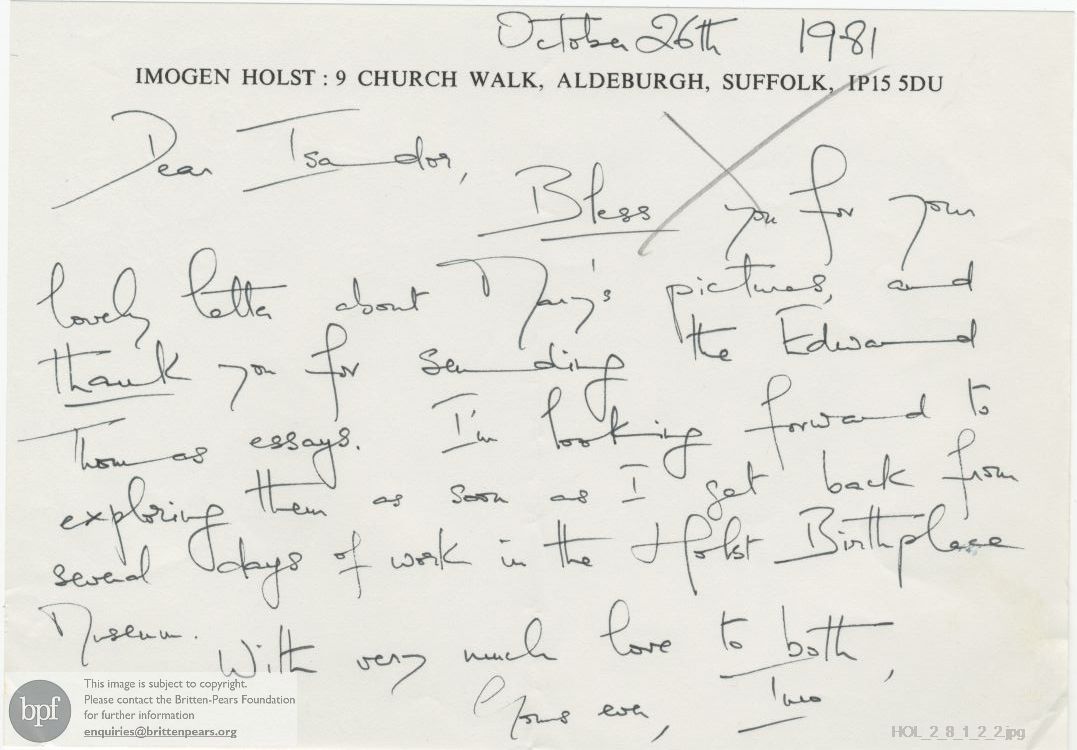 October 26th 1981
IMOGEN HOLST : 9 CHURCH WALK, ALDEBURGH, SUFFOLK, IP15 5DU
Dear Isador,
Bless you for your
lovely letter about Mary's pictures, and
thank you for sending the Edward
Thomas essays. I'm looking forward to
exploring them as soon as I get back from
several days of work in the Holst Birthplace
Museum.
With very much love to both,
Yours ever,
Imo
bpf
This image is subject to copyright.
Please contact the Britten-Pears Foundation
for further information
enquiries@brittenpears.org
HOL_2_8_1_2_2.jpg